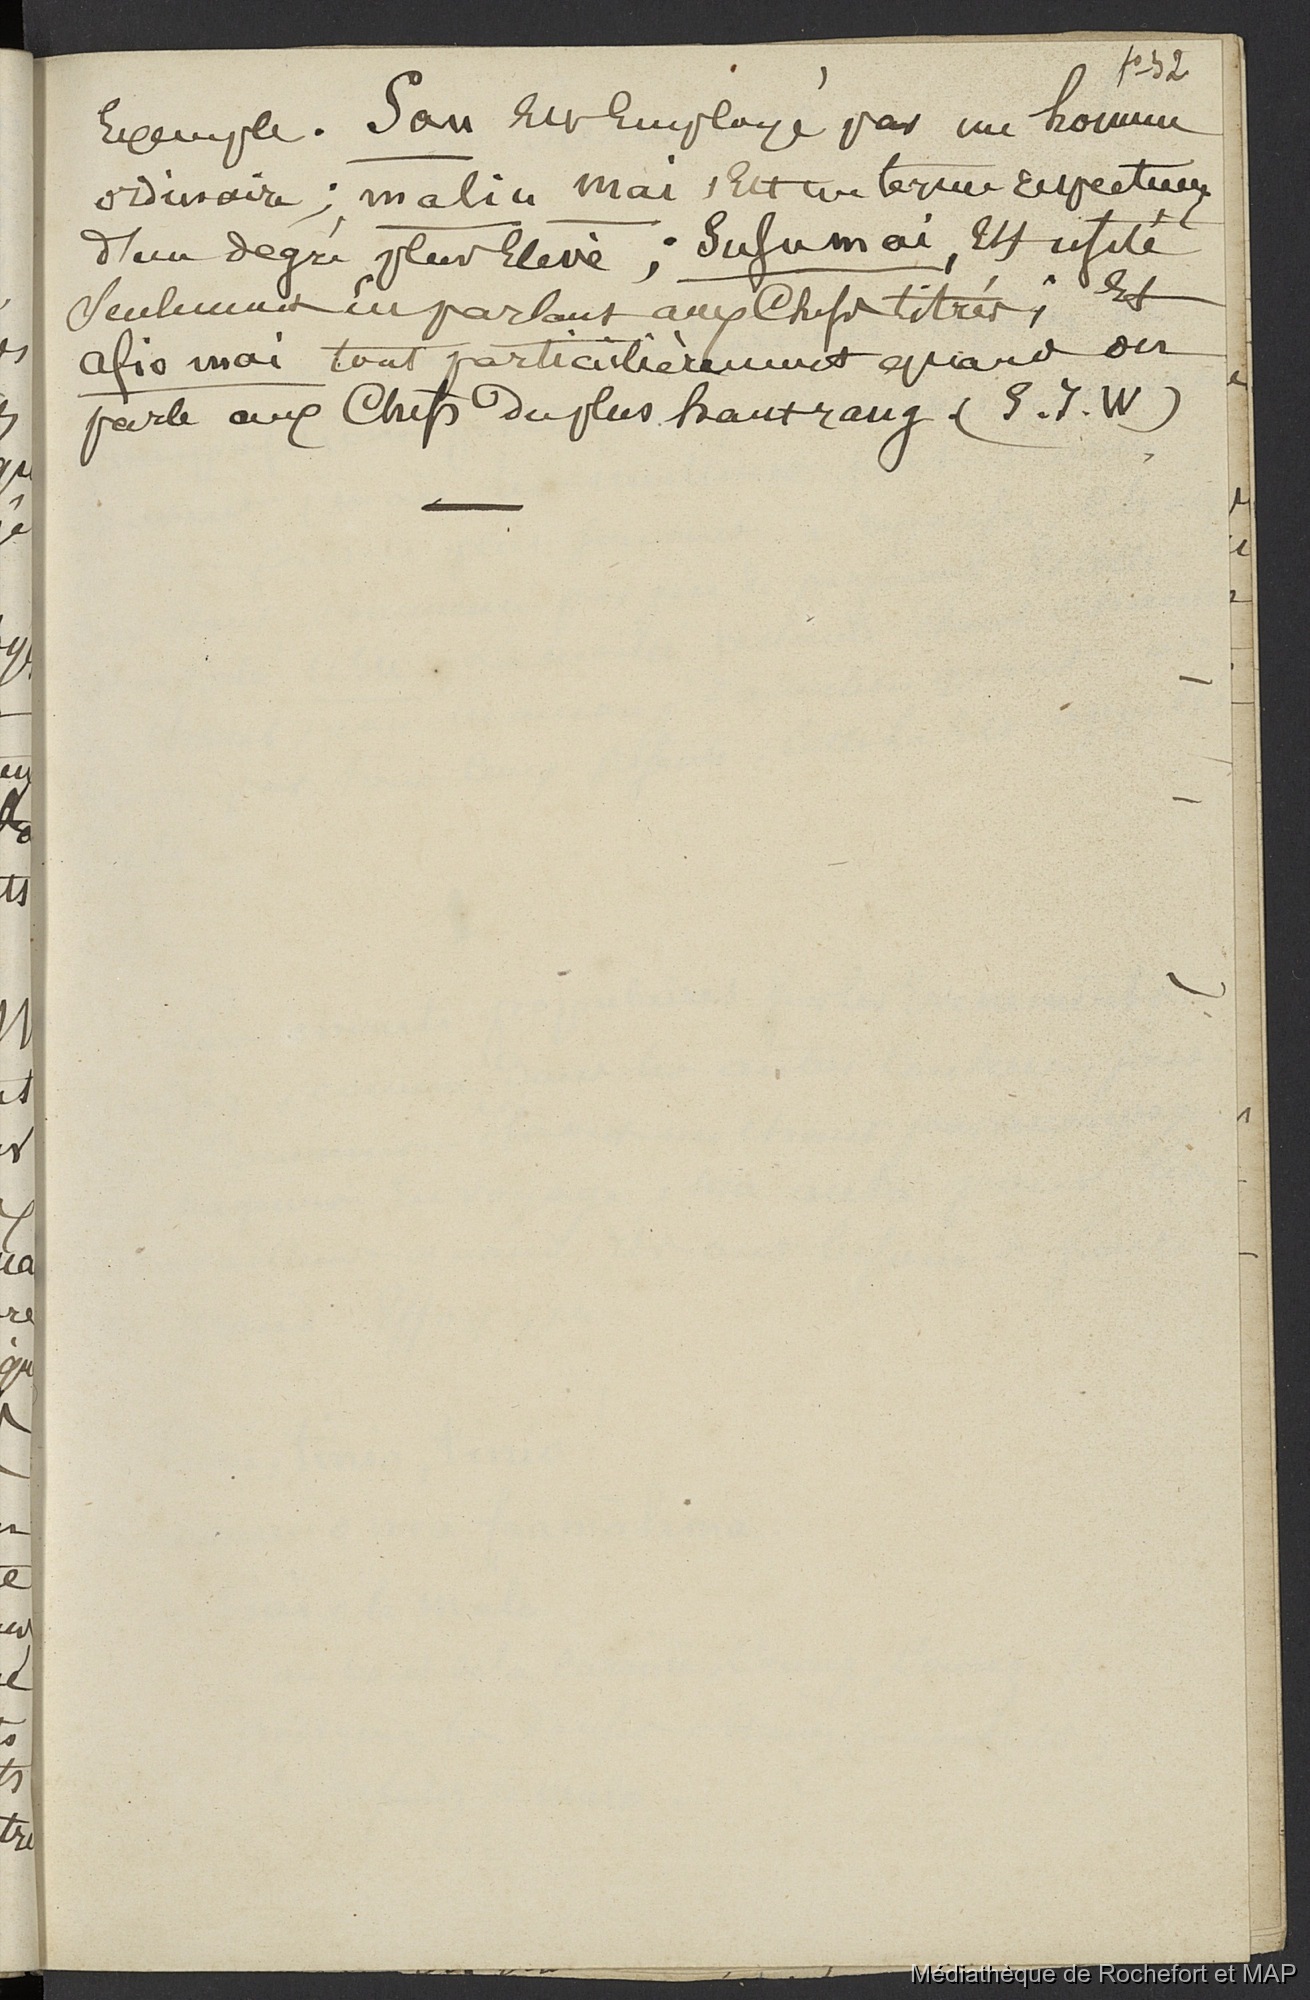 fo 52
Exemple. Sau est employé par un homme
ordinaire ; maliu mai, est un terme respectueux
d'un degré plus élevé ; Susu mai, est usité
seulement en parlant aux Chefs titrés ; Et
afio mai tout particulièrement quand on
parle aux Chefs du plus haut rang. ( S. J. W )
Médiathèque de Rochefort et MAP